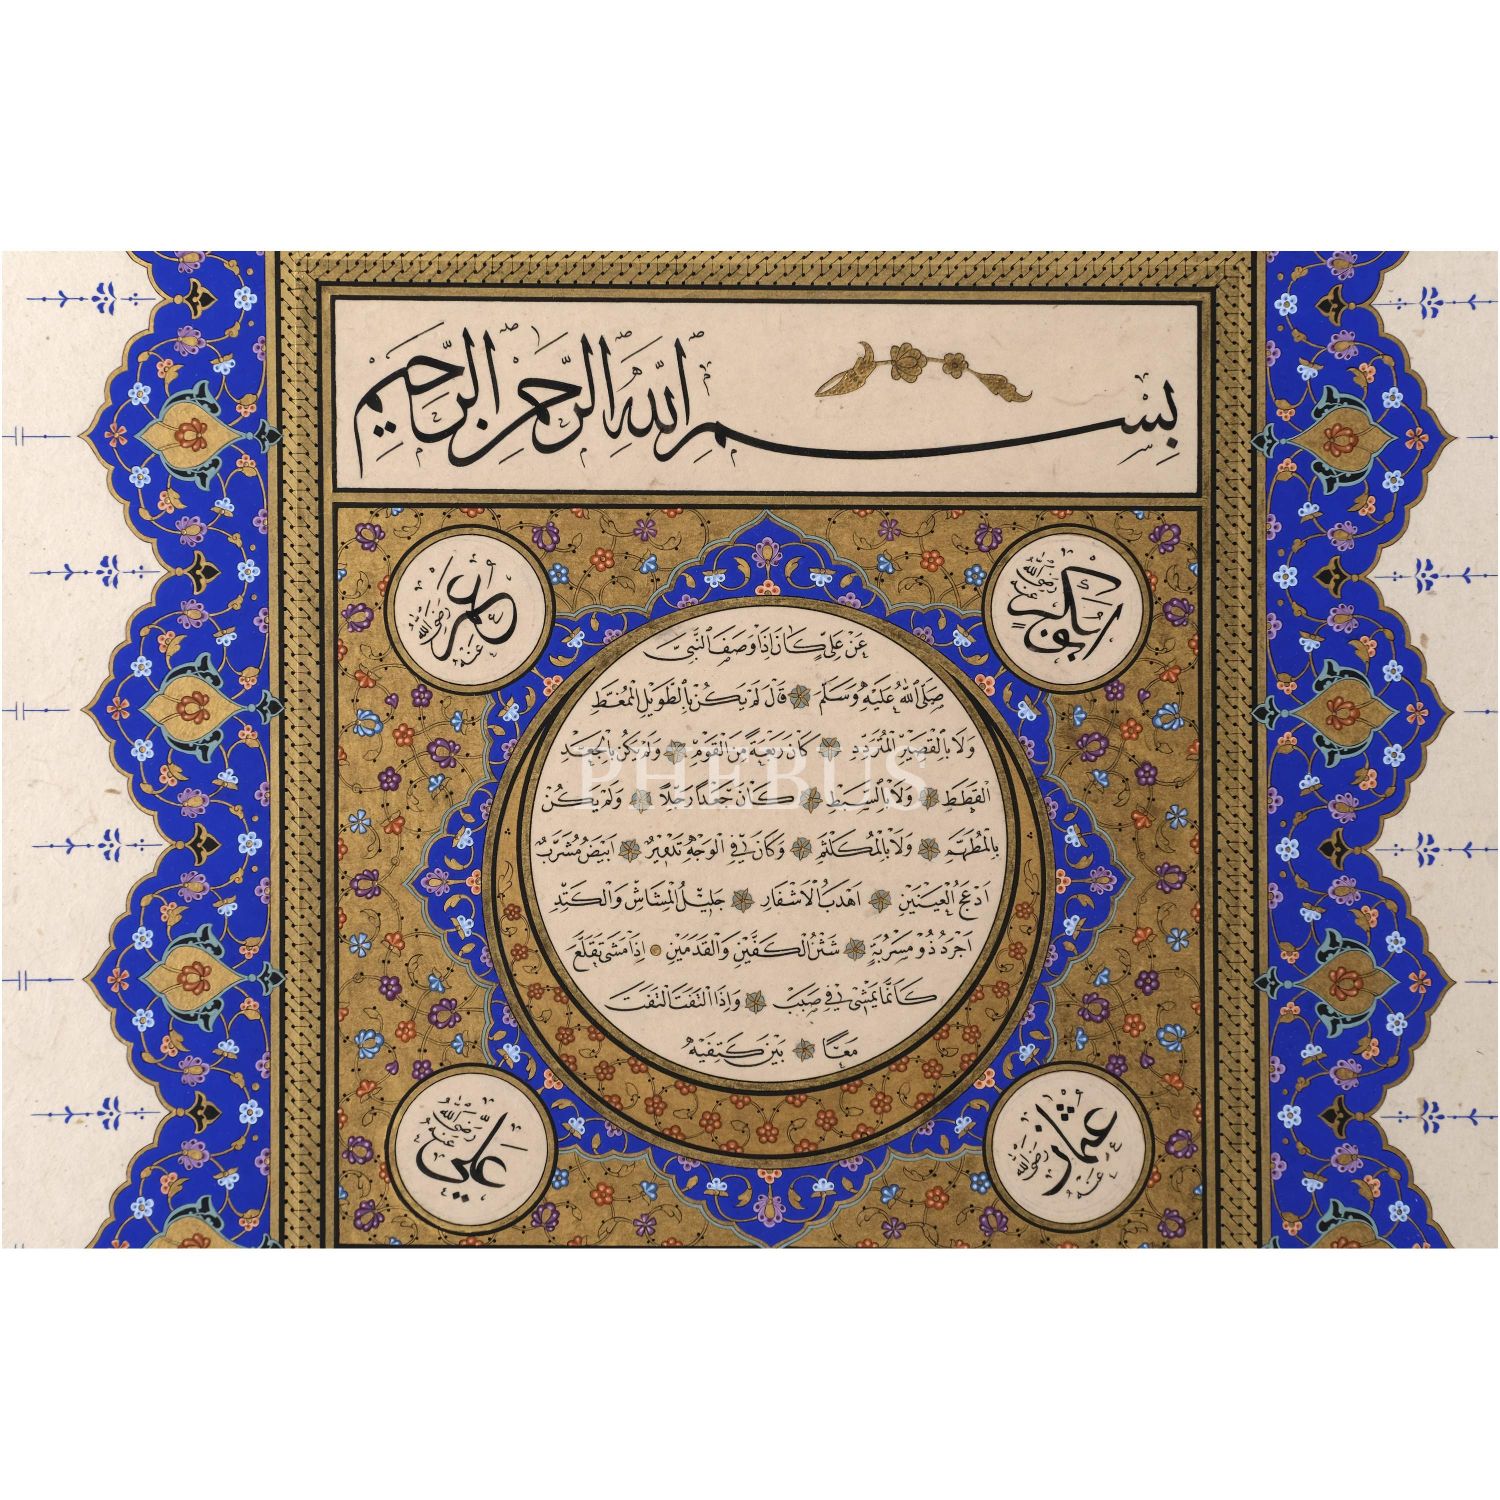 بِسْمِ اللَّهِ الرَّحْمَنِ الرَّحِيمِ
أبو بكر رضي الله عنه
عمر رضي الله عنه
عَنْ عَلِيٍّ كَانَ إِذَا وَصَفَ النَّبِيَّ
صَلَّى اللَّهُ عَلَيْهِ وَسَلَّمَ قَالَ لَمْ يَكُنْ بِالطَّوِيلِ الْمُمَّغِطِ
وَلَا بِالْقَصِيرِ الْمُتَرَدِّدِ كَانَ رَبْعَةً مِنَ الْقَوْمِ وَلَمْ يَكُنْ بِالْجَعْدِ
PHEBUS
الْقَطَطِ وَلَا بِالسَّبِطِ كَانَ جَعْدًا رَجِلًا وَلَمْ يَكُنْ
بِالْمُطَهَّمِ وَلَا بِالْمُكَلْثَمِ وَكَانَ فِي الْوَجْهِ تَدْوِيرٌ أَبْيَضُ مُشْرَبٌ
أَدْعَجُ الْعَيْنَيْنِ أَهْدَبُ الْأَشْفَارِ جَلِيلُ الْمُشَاشِ وَالْكَتَدِ
أَجْرَدُ ذُو مَسْرُبَةٍ شَثْنُ الْكَفَّيْنِ وَالْقَدَمَيْنِ إِذَا مَشَى تَقَلَّعَ
كَأَنَّمَا يَمْشِي فِي صَبَبٍ وَإِذَا الْتَفَتَ الْتَفَتَ
مَعًا بَيْنَ كَتِفَيْهِ
عثمان رضي الله عنه
علي رضي الله عنه